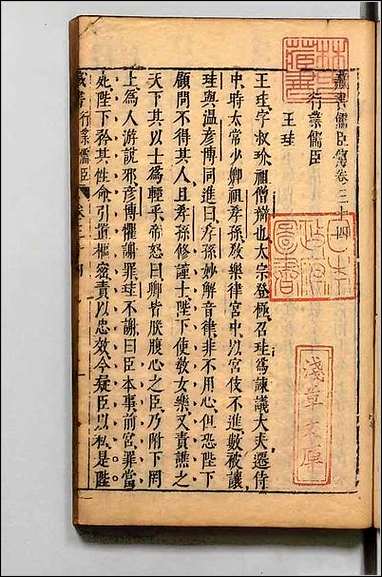 藏書儒臣傳卷三十四
行業儒臣
王珪
王珪字叔玠祖僧辯也太宗登極召珪為諫議大夫遷侍
中時太常少卿祖孝孫敎樂律宮中以宮伎不進數被讓
珪與溫彥博同進曰孝孫妙解音律非不用心但恐陛下
顧問不得其人且孝孫修謹士陛下使敎女樂又責譙之
天下其以士為輕乎帝怒曰卿皆朕腹心之臣乃附下罔
上為人游說邪彥博懼謝罪珪不謝曰臣本事前宮罪當
死陛下矜其性命引置樞密責以忠效今疑臣以私是陛
藏書行業儒臣
林氏藏書
日本政府圖書
淺草文庫